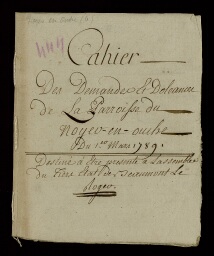 Cahier
Des Demandes Et Doleances
de La Parroisse du
Noyer-en-ouche
Du 1er Mars 1789.
Destiné a Etre presenté a Lassemblée
du tiers Etat de Beaumont Le
Roger.